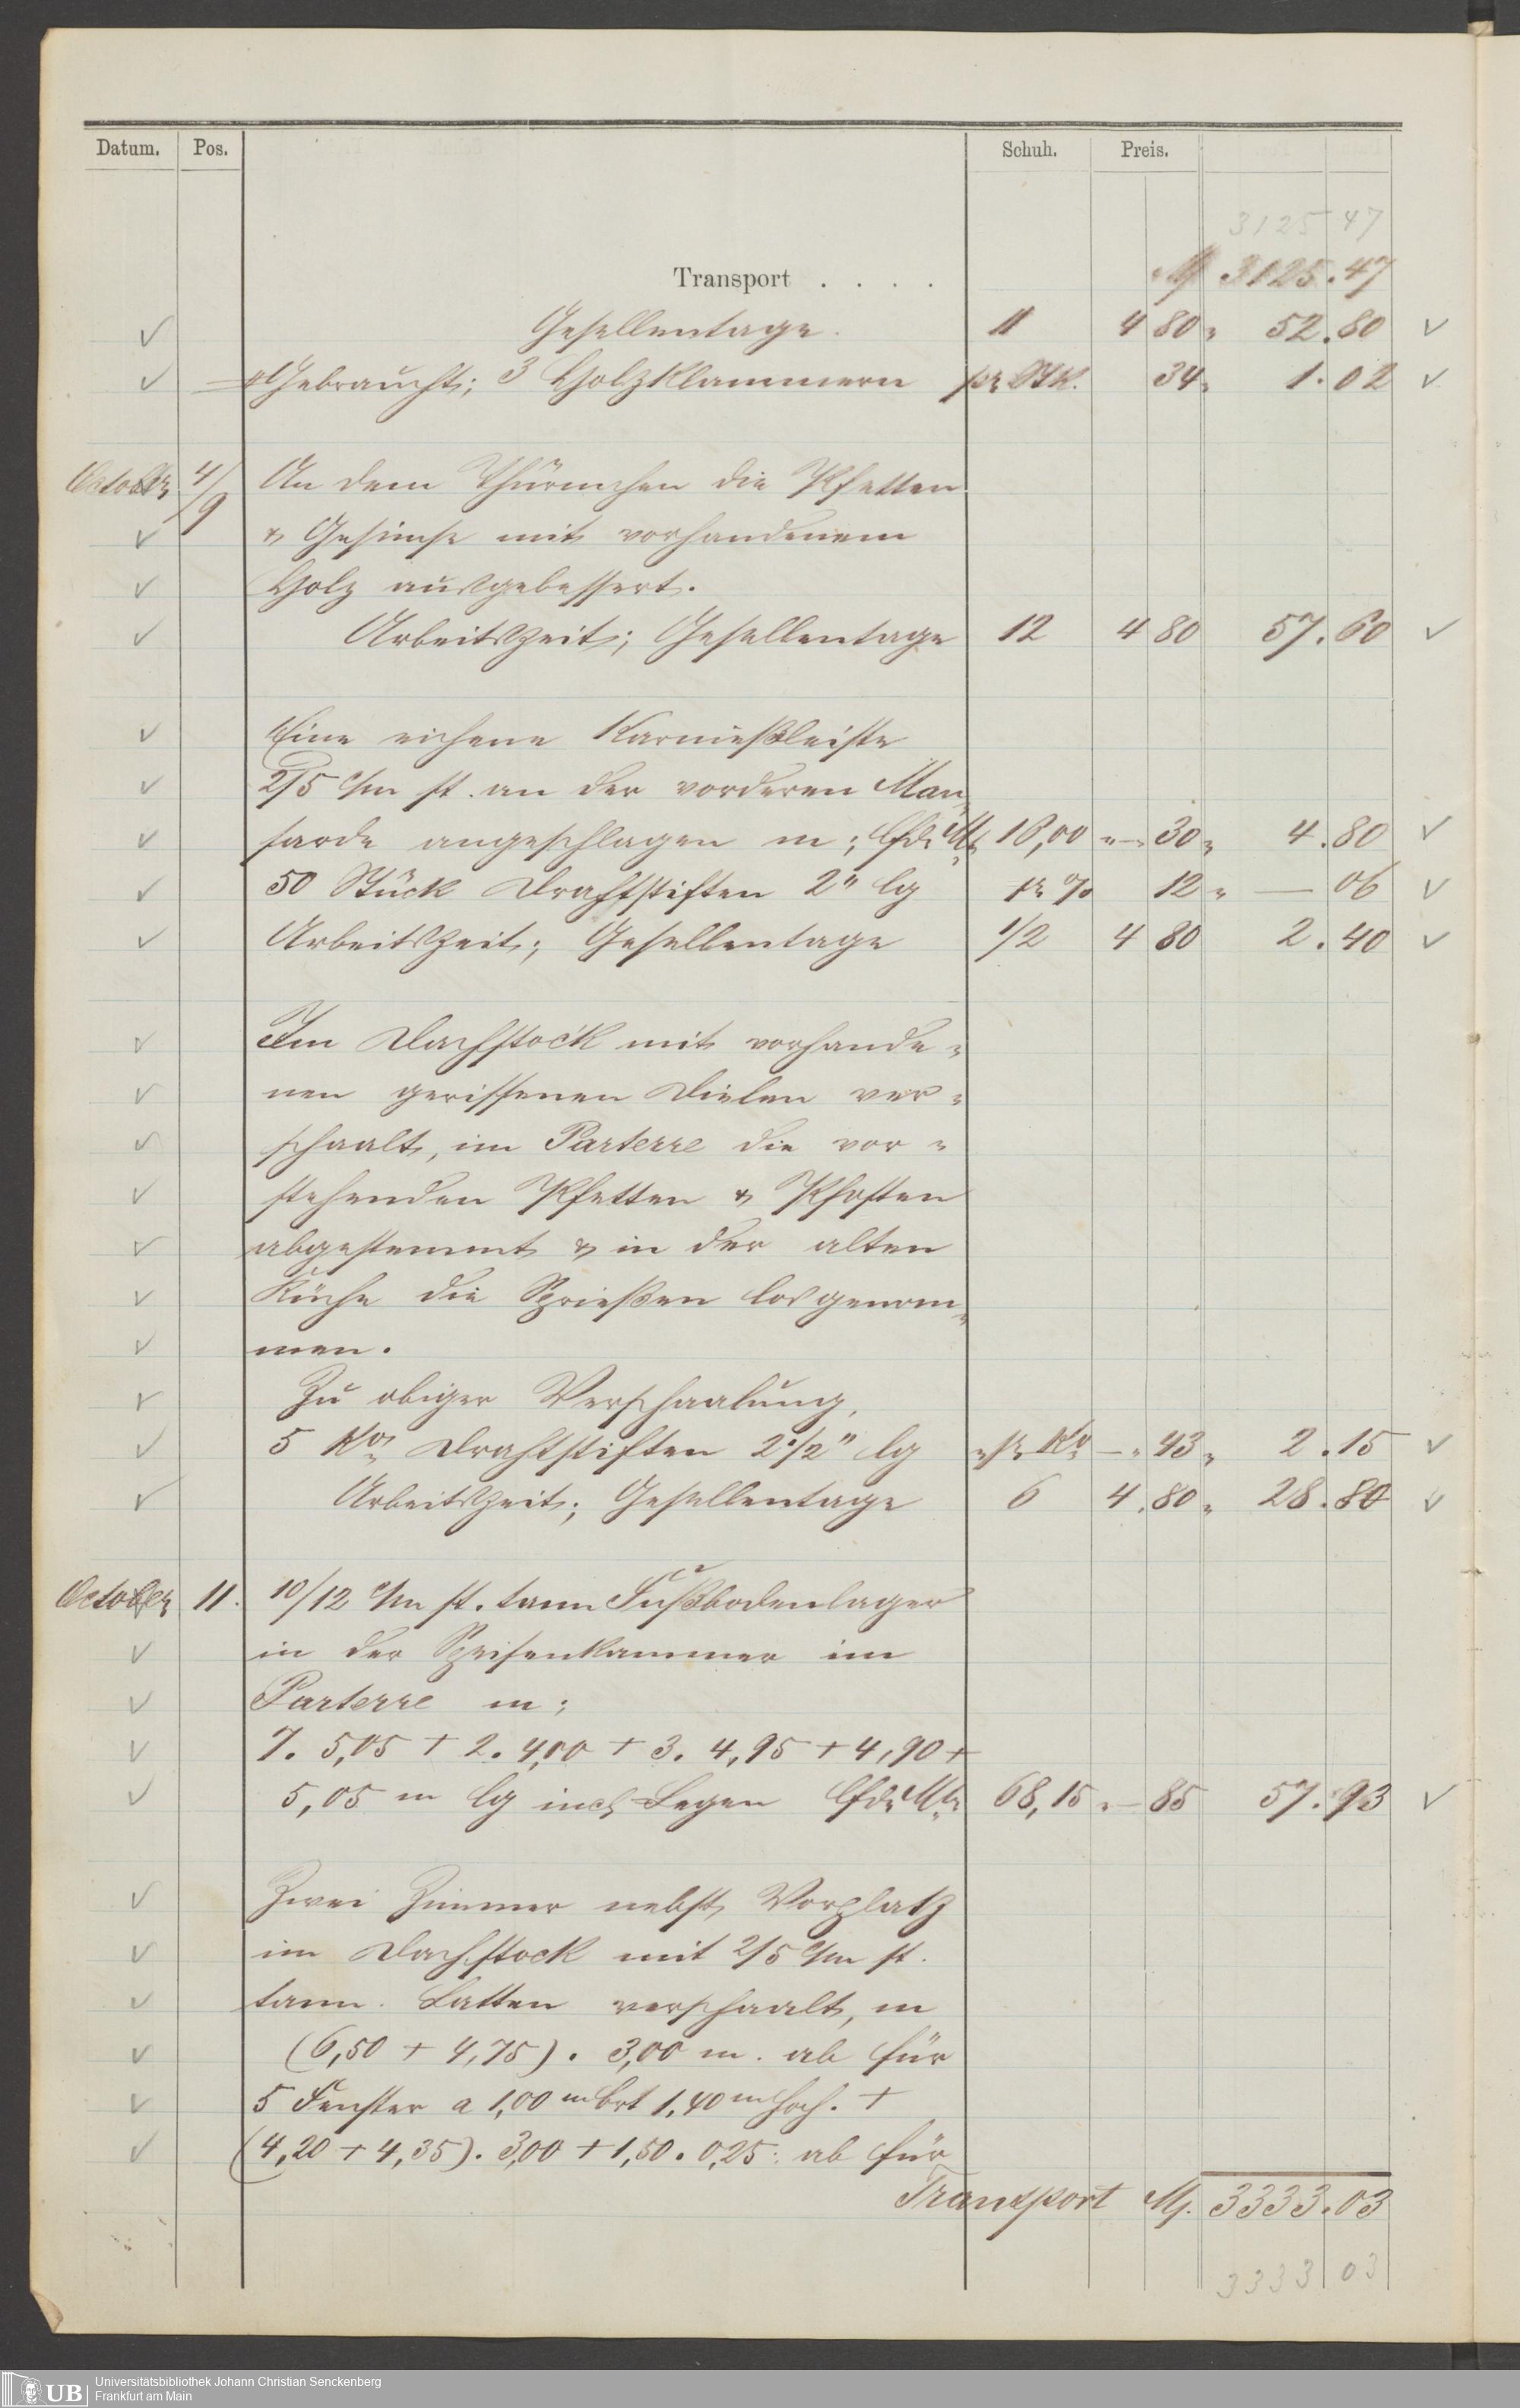 Datum. Pos. Schuh. Preis.
3125 47
Transport . . . . M 3125.47
Gesellentage. 11 4 80 " 52.80
Gebraucht; 3 Holzklammern pr Stk. 34 " 1.02
October 4/9 An dem Thürmchen die Pfetten
& Gesimse mit vorhandenem
Holz ausgebessert.
Arbeitszeit; Gesellentage 12 4 80 57.60
Eine eichene Karnießleiste
2/5 c/m st. an der vorderen Man-
sarde angeschlagen m; lfd. Mtr 16,00 " — 30 " 4.80
50 Stück Drahtstiften 2" lg pr % 12 " — 06
Arbeitszeit; Gesellentage 1/2 4 80 2.40
Im Dachstock mit vorhande-
nen gerissenen Dielen ver-
schaalt, im Parterre die vor-
stehenden Pfetten & Pfosten
abgestemmt & in der alten
Küche die Sprießen losgenom-
men.
Zu obiger Verschaalung,
5 Ko Drahtstiften 2 1/2" lg " pr Ko — " 43 " 2.15
Arbeitszeit; Gesellentage 6 4.80 " 28.80
October 11. 10/12 c/m st. tann Fußbodenlager
in der Speisenkammer im
Parterre m;
7. 5,05 + 2. 4,00 + 3. 4,95 + 4,90 +
5,05 m lg incl Legen lfd. Mtr 68,15 " — 85 57.93
Zwei Zimmer nebst Vorplatz
im Dachstock mit 2/5 c/m st.
tann. Latten verschaalt, m
(6,50 + 4,75). 3,00 m. ab für
5 Fenster a 1,00 m brt 1,40 m hoch. +
(4,20 + 4,35). 3,00 + 1,50. 0,25: ab für
Transport M. 3333.03
3333 03
UB Universitätsbibliothek Johann Christian Senckenberg
Frankfurt am Main